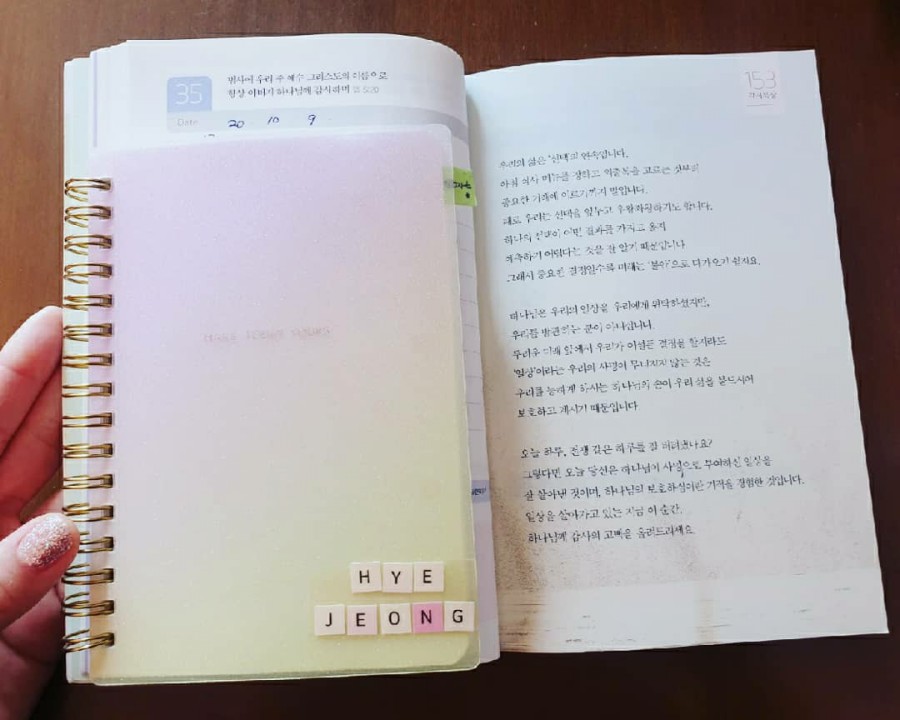 35
범사에 우리 주 예수 그리스도의 이름으로
항상 아버지 하나님께 감사하며 엡 5:20
Date 20 10 9
HYE
JEONG
153
감사묵상
우리의 삶은 '선택'의 연속입니다.
아침 식사 메뉴를 정하고 외출복을 고르는 것부터
중요한 거래에 이르기까지 말입니다.
때로 우리는 선택을 앞두고 우왕좌왕하기도 합니다.
하나의 선택이 어떤 결과를 가지고 올지
예측하기 어렵다는 것을 잘 알기 때문입니다.
그래서 중요한 결정일수록 미래는 '불안'으로 다가오기 쉽지요.
하나님은 우리의 일상을 우리에게 위탁하셨지만,
우리를 방관하는 분이 아니십니다.
두려운 미래 앞에서 우리가 어떠한 결정을 할지라도
'일상'이라는 우리의 사명이 무너지지 않는 것은
우리를 능하게 하시는 하나님의 손이 우리 삶을 붙드시어
보호하고 계시기 때문입니다.
오늘 하루, 전쟁 같은 하루를 잘 버텨냈나요?
그렇다면 오늘 당신은 하나님이 사명으로 부여하신 일상을
잘 살아낸 것이며, 하나님의 보호하심이란 기적을 경험한 것입니다.
일상을 살아가고 있는 지금 이 순간,
하나님께 감사의 고백을 올려드리세요.